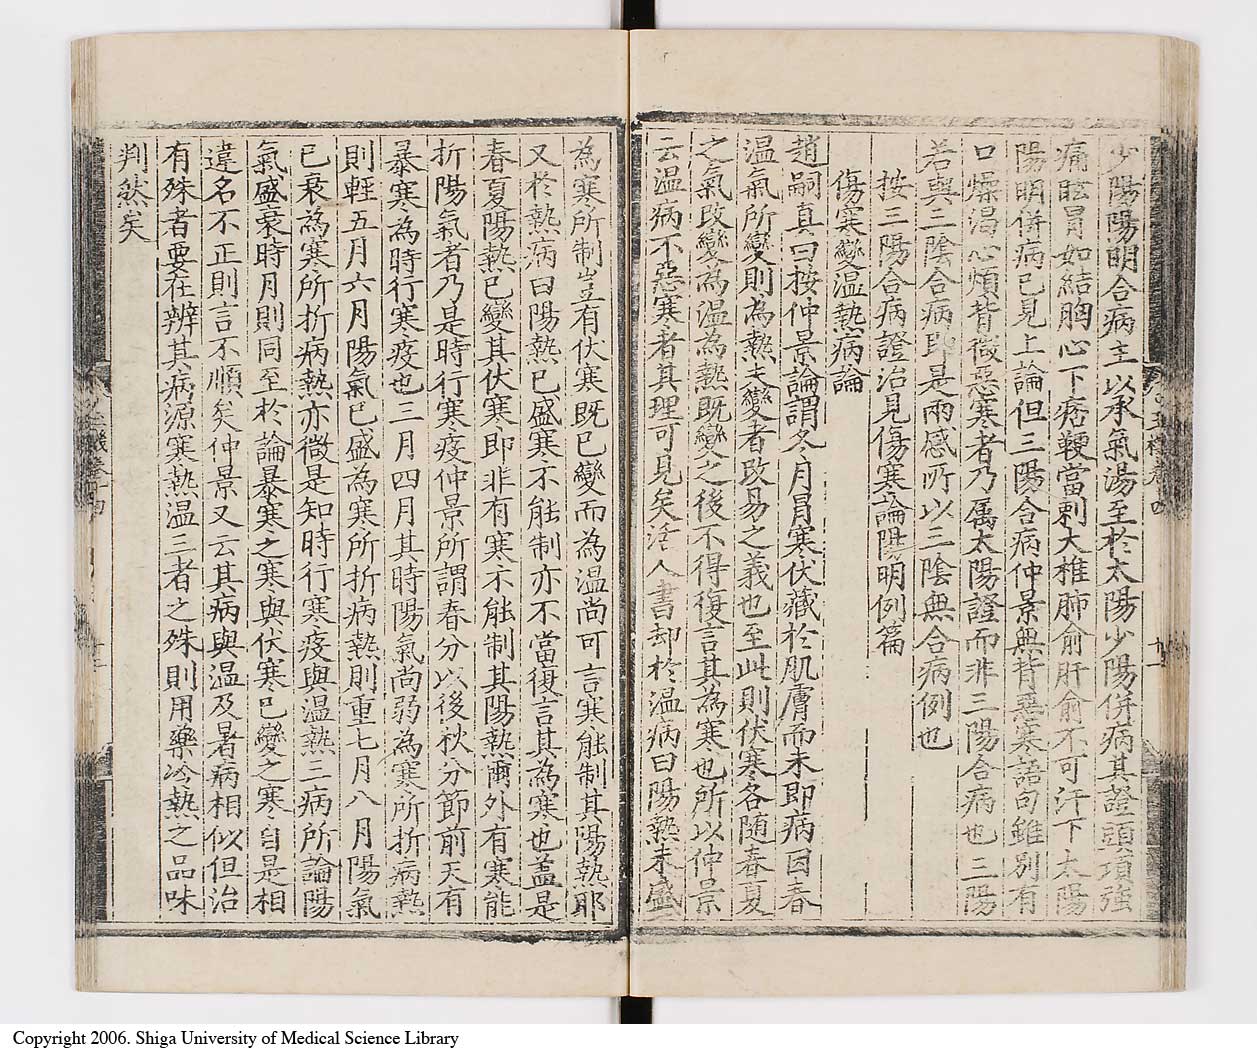 少陽陽明合病主以承氣湯至於太陽少陽併病其證頭項強
痛眩冒如結胸心下痞鞕當刺大椎肺俞肝俞不可汗下太陽
陽明併病已見上論但三陽合病仲景無背惡寒語句雖別有
口燥渴心煩背微惡寒者乃属太陽證而非三陽合病也三陽
若與三陰合病即是兩感所以三陰無合病例也
按三陽合病證治見傷寒論陽明例篇
傷寒變温熱病論
趙嗣真曰按仲景論謂冬月冒寒伏藏於肌膚而未即病因春
温氣所變則為熱夫變者改易之義也至此則伏寒各随春夏
之氣改變為温為熱既變之後不得復言其為寒也所以仲景
云温病不惡寒者其理可見矣活人書却於温病曰陽熱未盛
為寒所制豈有伏寒既已變而為温尚可言寒能制其陽熱耶
又於熱病曰陽熱已盛寒不能制亦不當復言其為寒也盖是
春夏陽熱已變其伏寒即非有寒不能制其陽熱爾外有寒能
折陽氣者乃是時行寒疫仲景所謂春分以後秋分節前天有
暴寒為時行寒疫也三月四月其時陽氣尚弱為寒所折病熱
則輕五月六月陽氣已盛為寒所折病熱則重七月八月陽氣
已衰為寒所折病熱亦微是知時行寒疫與温熱二病所論陽
氣盛衰時月則同至於論暴寒之寒與伏寒已變之寒自是相
違名不正則言不順矣仲景又云其病與温及暑病相似但治
有殊者要在辨其病源寒熱温三者之殊則用藥冷熱之品味
判然矣
Copyright 2006. Shiga University of Medical Science Library